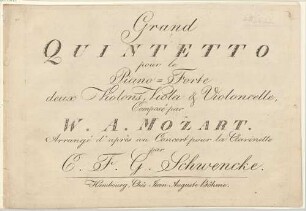 Grand
QUINTETTO
pour le
Piano=Forte
deux Violons, Viola & Violoncelle,
Composé par
W. A. MOZART.
Arrangé d'après un Concert pour la Clarinette
par
C. F. G. Schwencke.
Hambourg, Chés Jean Auguste Böhme.